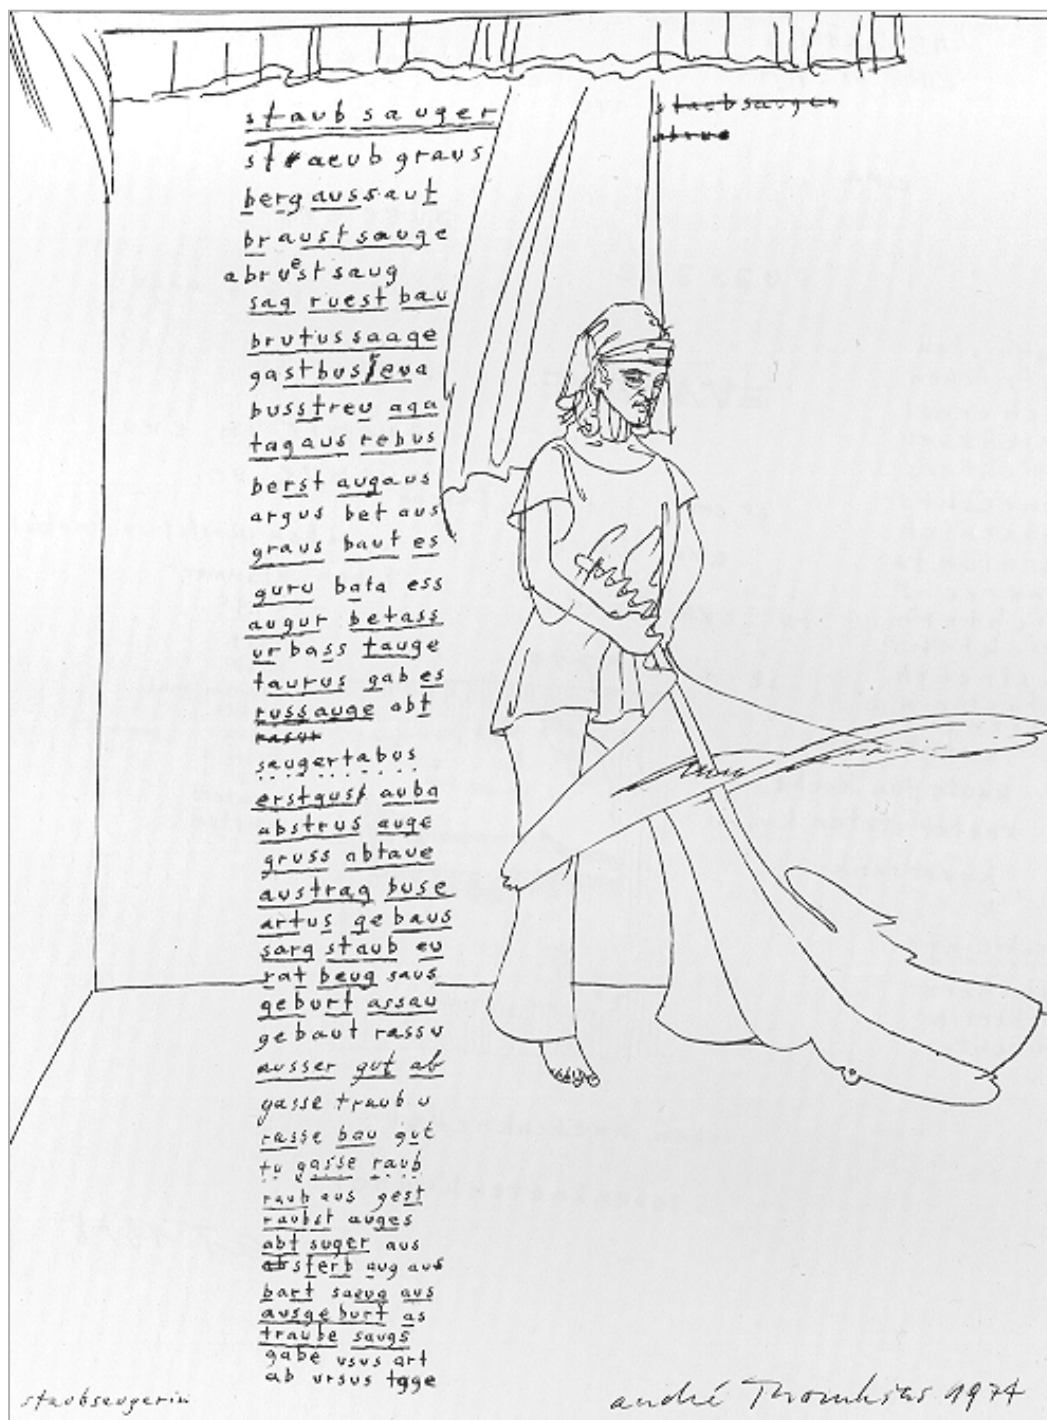 staubsauger
staeub graus
berg aussaut
braust sauge
abruest saug
sag ruest bau
brutus saage
gastbus eura
busstreu aga
tagaus rebus
berst augaus
argus bet aus
graus baut es
guru bata ess
augur betass
ur bass tauge
taurus gab es
russauge abt
rasur
saugertabus
erstguss auba
abstrus auge
gruss abtaue
austrag buse
artus gebaus
sarg staub eu
rat beug saus
geburt assau
gebaut rassu
ausser gut ab
gasse traub u
rasse bau gut
tu gasse raub
raub aus gest
raubst auges
abt suger aus
absterb aug aus
bart saeug aus
ausgeburt as
traube saugs
gabe usus art
ab ursus tgge
staubsaugen
abrue
staubsaugerin
andré Thomkins 1974